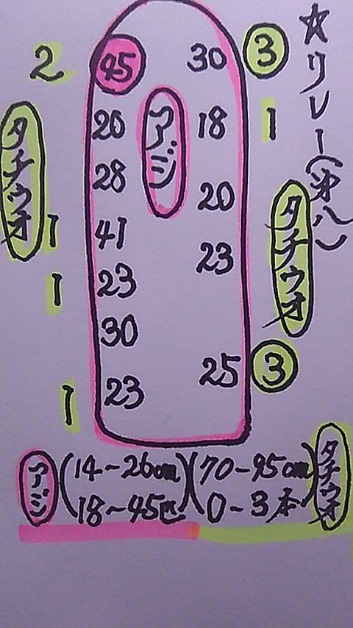 ☆リレー(第八)
2 45 30 3
20 アジ 18 1
タチウオ 28 20 タチウオ
1 41 23
1 23
30 25 3
1 23
アジ (14~26cm)(70~95cm) タチウオ
18~45匹 0~3本